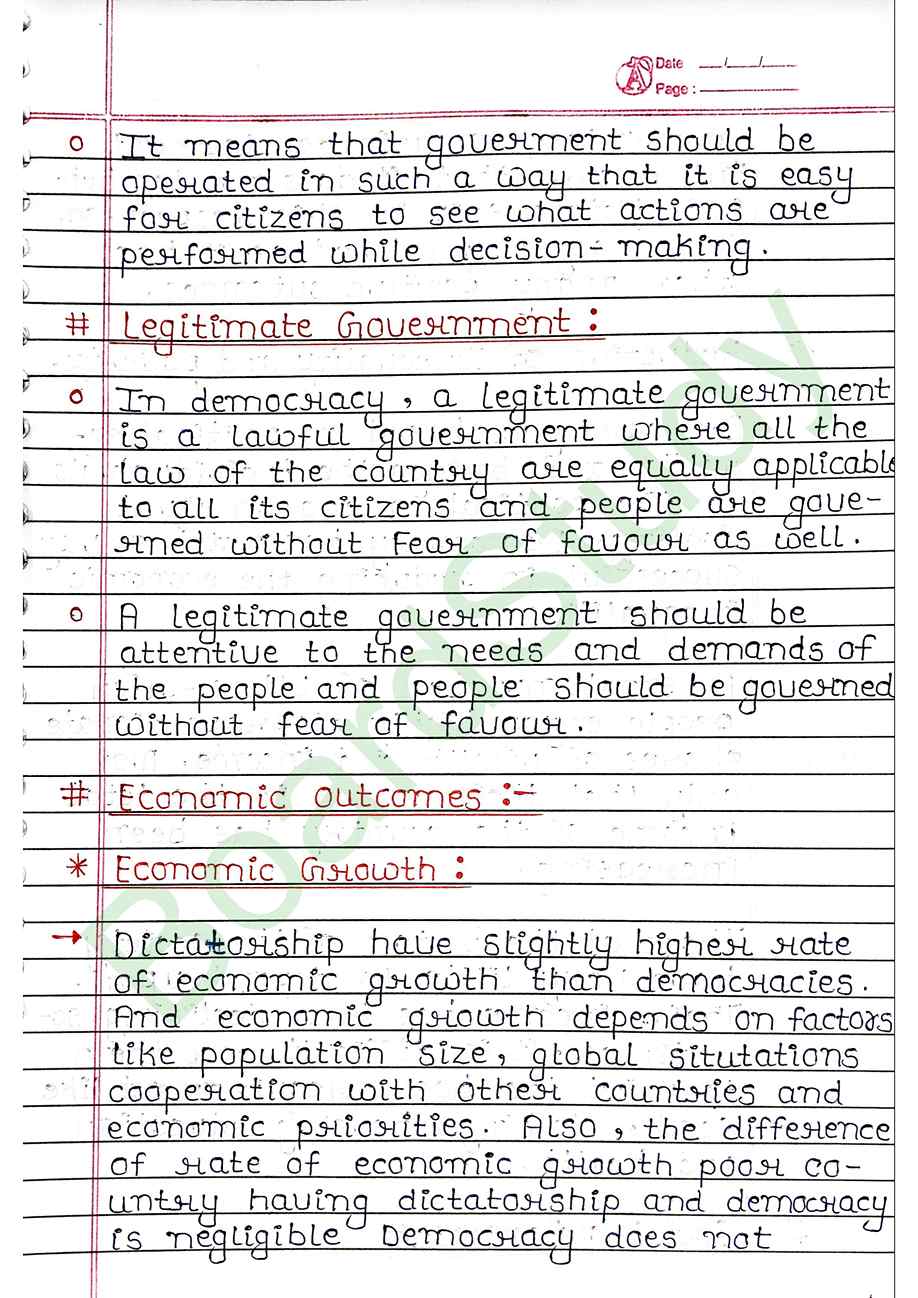 Date __/__/__
Page : ______
o It means that goverment should be
operated in such a way that it is easy
for citizens to see what actions are
performed while decision-making.
# Legitimate Government :
o In democracy, a legitimate government
is a lawful government where all the
law of the country are equally applicable
to all its citizens and people are gove-
rned without Fear of favour as well.
o A legitimate government should be
attentive to the needs and demands of
the people and people should be governed
without fear of favour.
# Economic Outcomes :-
* Economic Growth :
→ Dictatorship have slightly higher rate
of economic growth than democracies.
And economic growth depends on factors
like population size, global situtations
cooperation with other countries and
economic priorities. Also, the difference
of rate of economic growth poor co-
untry having dictatorship and democracy
is negligible Democracy does not
BoardStudy